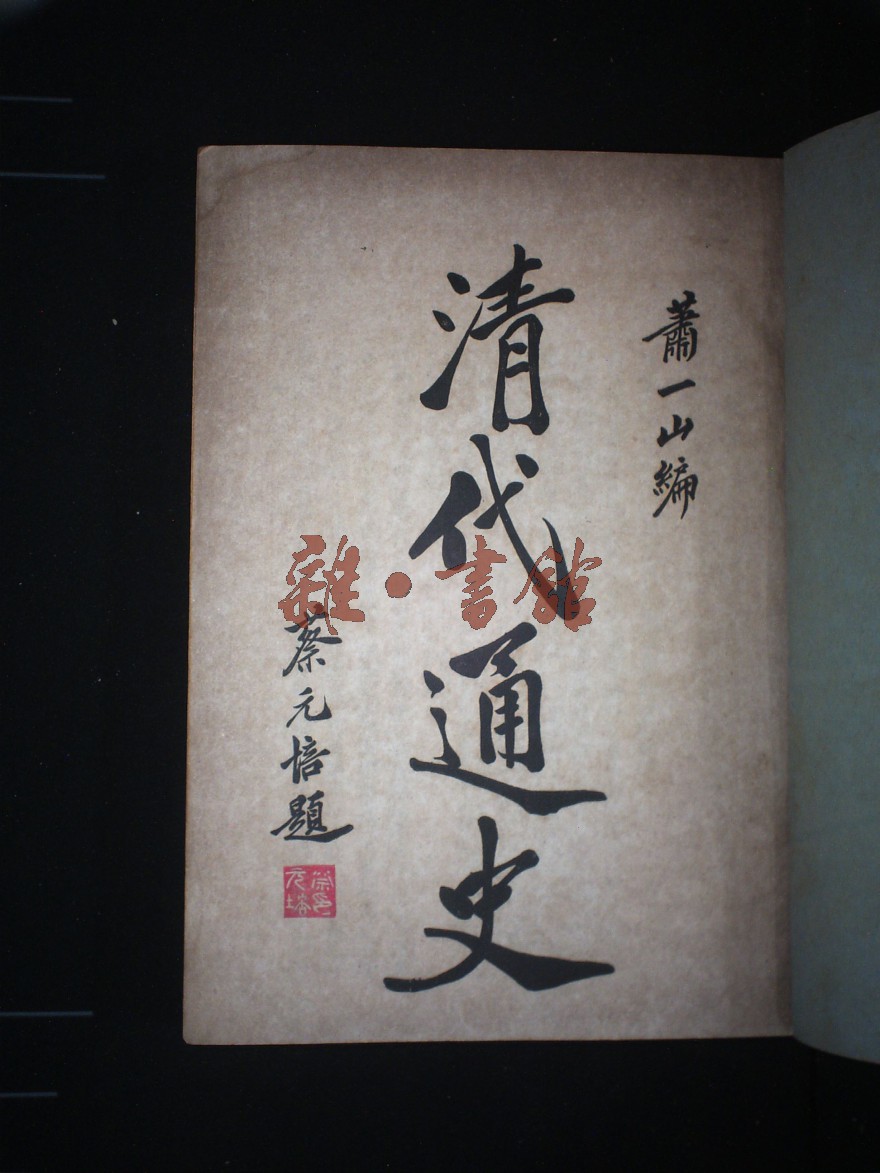 蕭一山編
清代通史
蔡元培題
蔡印元培
雜·書館